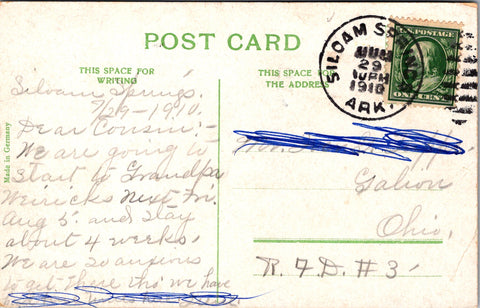 POST CARD
THIS SPACE FOR
WRITING
THIS SPACE FOR
THE ADDRESS
SILOAM SPRINGS
29
1 PM
1910
ARK.
U.S. POSTAGE
ONE CENT
Made in Germany
Siloam Springs.
7/29-1910.
Dear Cousin:-
We are going to
start to Grandpa
Weiricks Next Fri.
Aug 5. and stay
about 4 weeks.
We are so anxious
to get there tho' we have
Galion
Ohio.
R.F.D. #3.